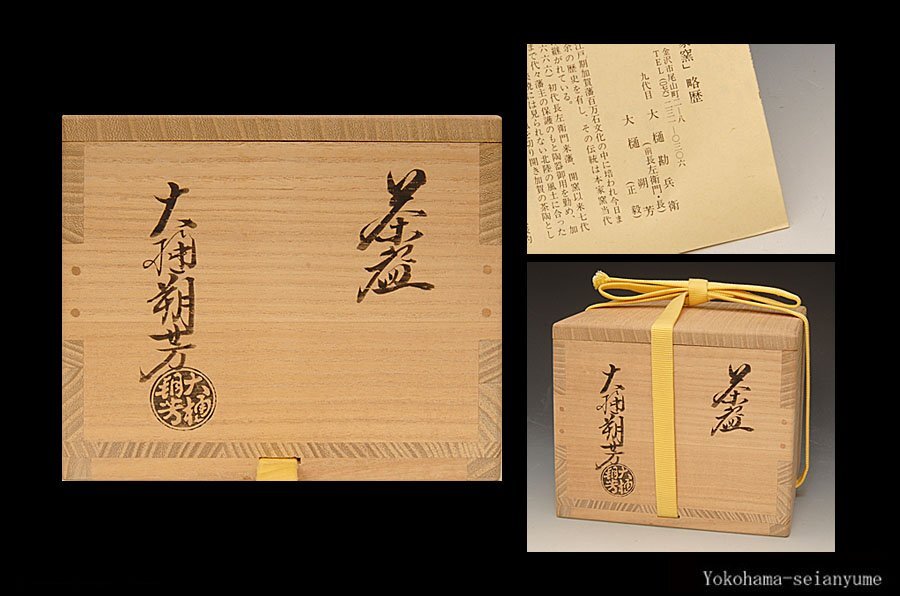 茶盌
大樋朔芳
大樋
朔芳
家窯」略歴
金沢市尾山町二―八
九代目 大樋勘兵衛
(前長左衛門・長)
大樋朔芳
(正毅)
江戸期加賀藩百万石文化の中に培われ今日ま
余の歴史を有し、その伝統は本家窯当代
継がれている。
六六六)初代長左衛門来藩、開窯以来七代
まで代々藩主の保護のもと陶器御用を勤め、加
には見られない北陸の風土に合った
切り開き加賀の茶陶とし
茶盌
大樋朔芳
大樋
朔芳
Yokohama-seianyume